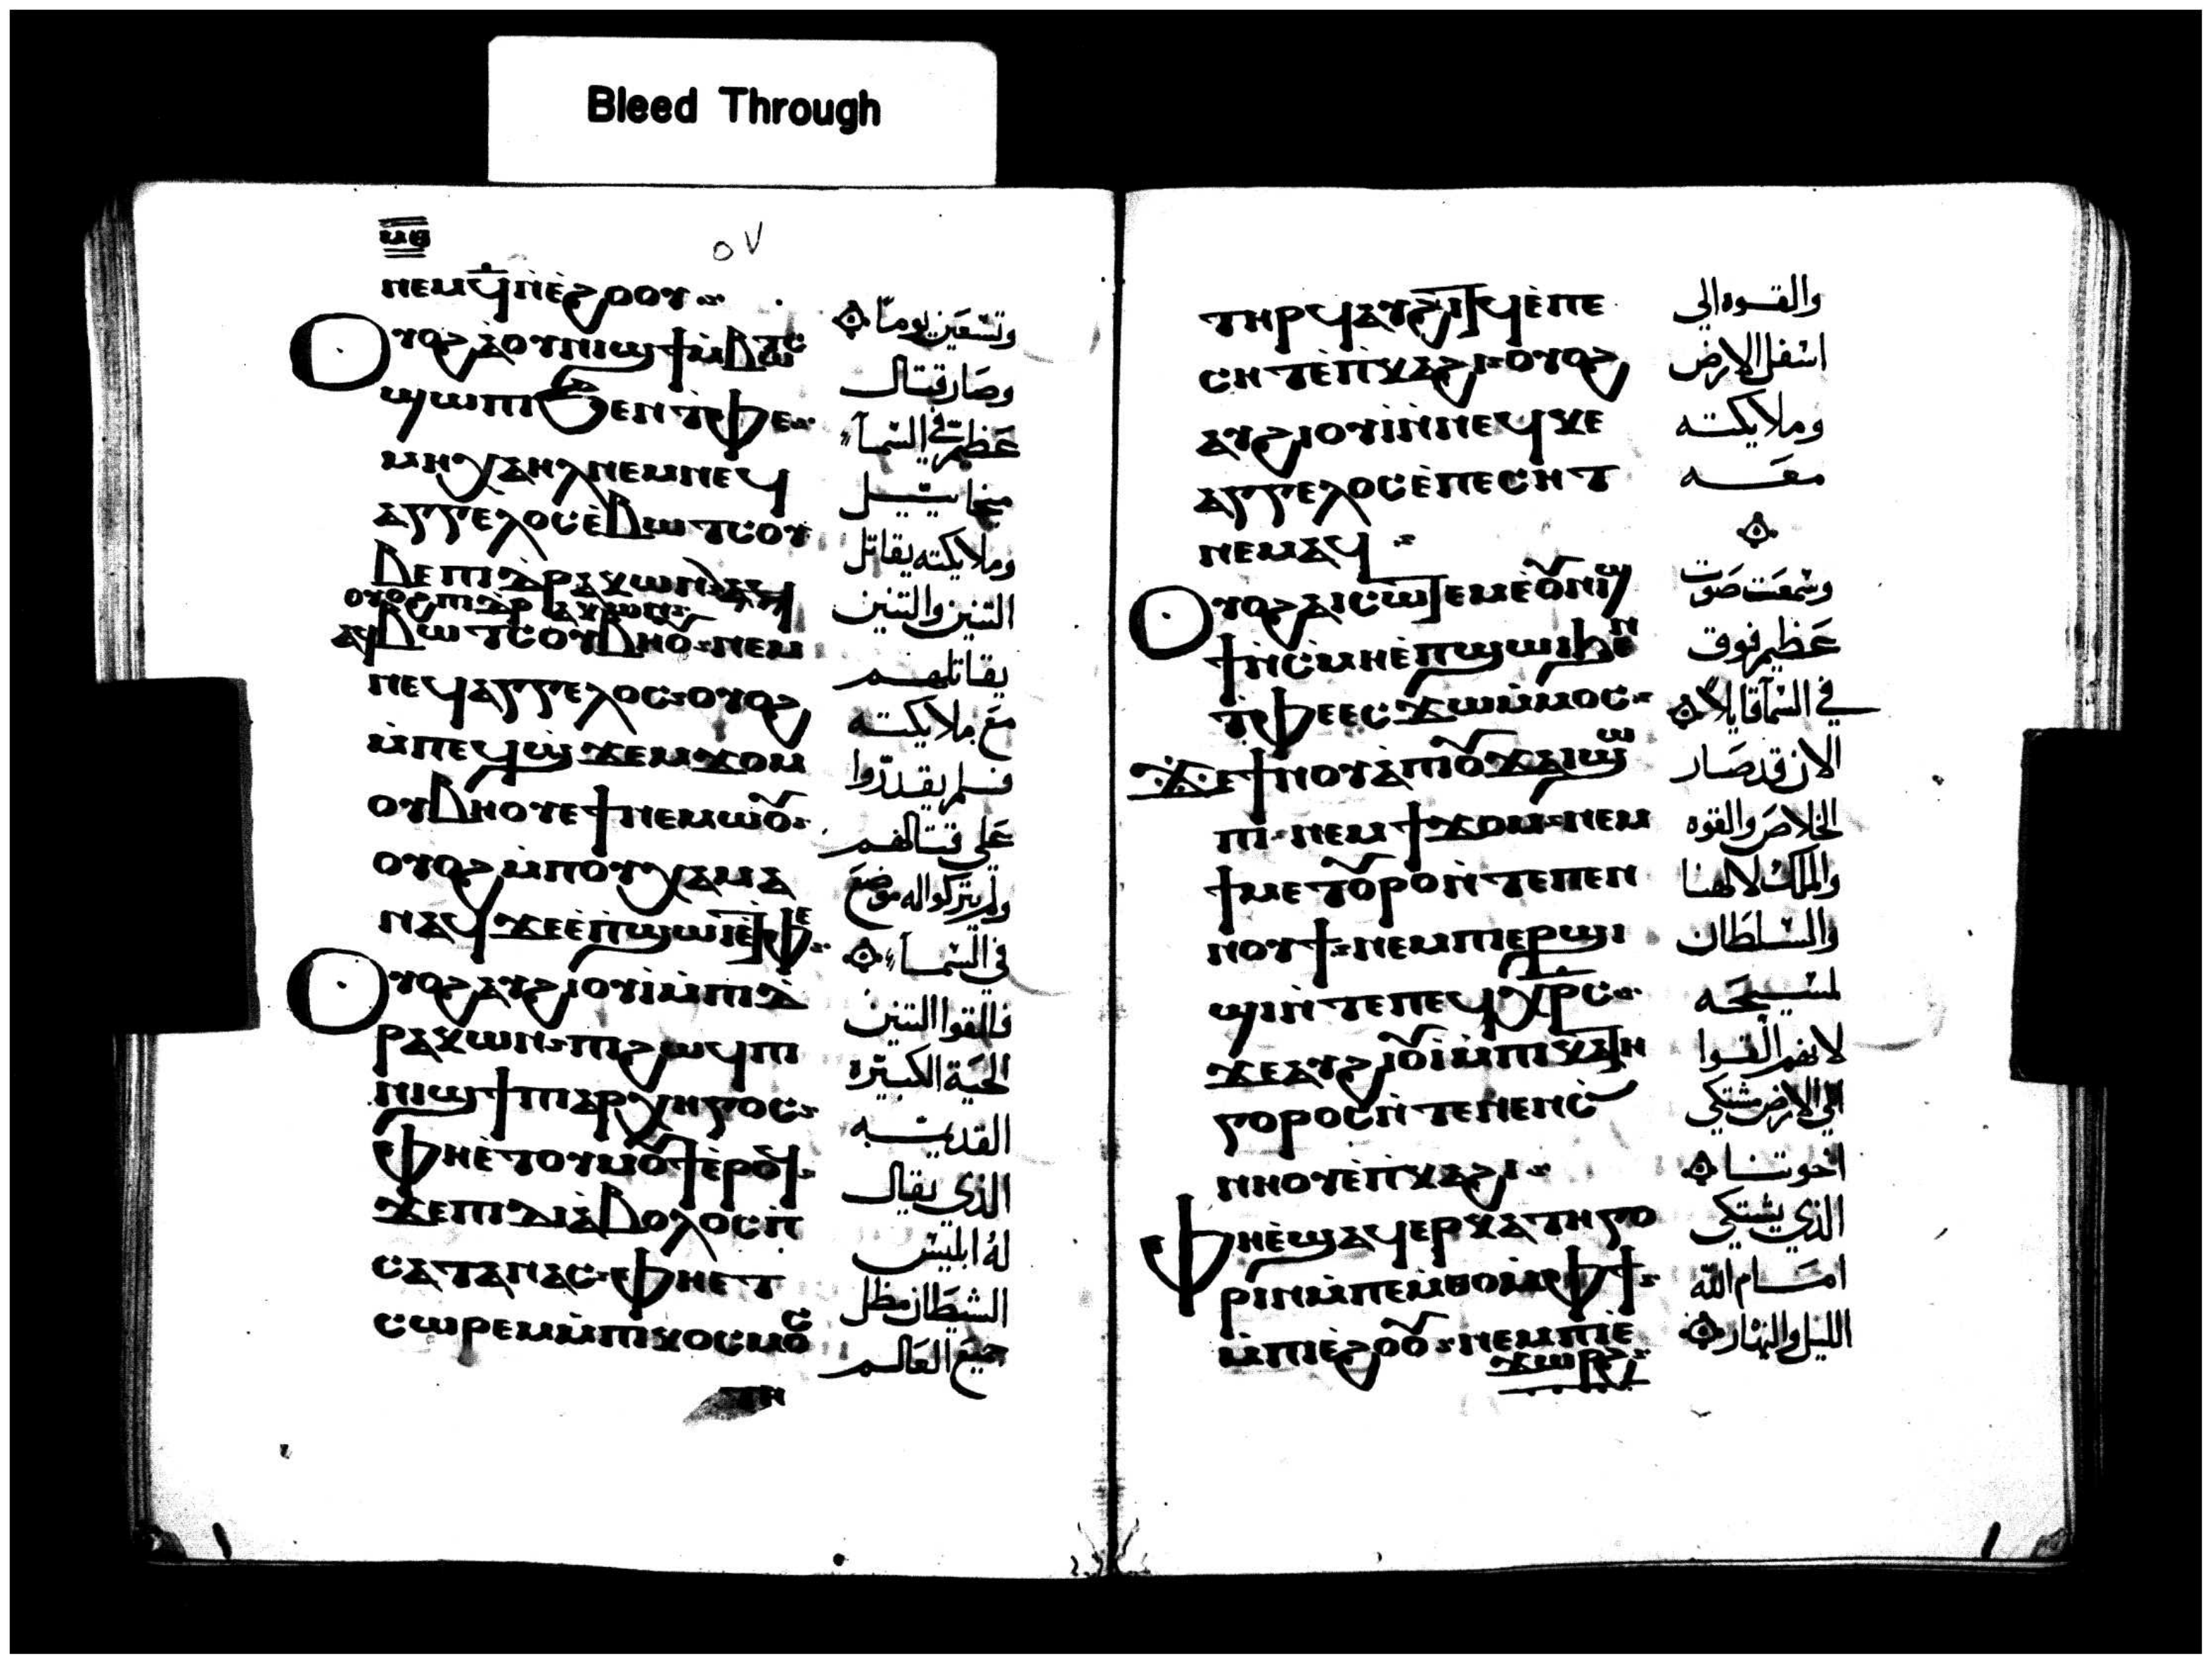 Bleed Through
ⲛⲉⲙϥ̄ⲛ̀ⲉ̀ϩⲟⲟⲩ
ⲟⲩⲟϩⲁ̀ⲟⲩⲛⲓϣϯⲙ̀ⲃⲱⲧⲥ
ϣⲱⲡⲓϧⲉⲛⲧ̀ⲫⲉ
ⲙⲏⲭⲁⲏⲗⲛⲉⲙⲛⲉϥ
ⲁⲅⲅⲉⲗⲟⲥⲉ̀ⲃⲱⲧⲥⲟⲩ
ⲃⲉⲡⲓⲇ̀ⲣⲁⲕⲱⲛ
ⲟⲩⲟϩⲡⲓⲇ̀ⲣⲁⲕⲱⲛ
ⲁϥⲃⲱⲧⲥⲟⲩⲃⲏⲟⲩ ⲛⲉⲙ
ⲛⲉϥⲁⲅⲅⲉⲗⲟⲥ ⲟⲩⲟϩ
ⲙ̀ⲡⲉϥϣ̀ϫⲉⲙϫⲟⲙ
ⲟⲩⲃⲏⲟⲩⲉϯⲛⲉⲙⲱⲟⲩ
ⲟⲩⲟϩⲙ̀ⲡⲟⲩⲭⲁⲙⲁ
ⲛⲁϥϫⲉⲉ̀ⲡ̀ϣⲱⲓⲉ̀ⲧ̀ⲫⲉ
ⲟⲩⲟϩⲁⲩϩⲓⲟⲩⲓ̀ⲙ̀ⲡⲓⲇ̀
ⲣⲁⲕⲱⲛ ⲡⲓϩⲱϥⲡⲓ
ⲛⲓϣϯⲡⲓⲁⲣⲭⲏⲅⲟⲥ
ⲫⲏⲉ̀ⲧⲟⲩⲙⲟⲩϯⲉ̀ⲣⲟϥ
ϫⲉⲡⲓⲇⲓⲁ̀ⲃⲟⲗⲟⲥⲡ̀
ⲥⲁⲧⲁⲛⲁⲥ ⲫⲏⲉⲧ
ⲥⲱⲣⲉⲙⲙ̀ⲡⲓⲕⲟⲥⲙⲟⲥ
ⲧⲏ
وتسعين يوما
وصار قتال
عظيم في السما
ميخاييل
وملايكته يقاتل
التنين والتنين
يقاتلهم
مع ملايكته
فلم يقدروا
على قتالهم
ولم يتركوا له موضع
في السما
فالقوا التنين
الحية الكبيرة
القديمه
الذي يقال
له ابليس
الشيطان مظل
جميع العالم
ⲧⲏⲣϥⲁⲩϩⲓⲧϥⲉ̀ⲡⲉ
ⲥⲏⲧⲉ̀ⲡ̀ⲕⲁϩⲓ ⲟⲩⲟϩ
ⲁⲩϩⲓⲟⲩⲓ̀ⲛ̀ⲛⲉϥⲕⲉ
ⲁⲅⲅⲉⲗⲟⲥⲉ̀ⲡⲉⲥⲏⲧ
ⲛⲉⲙⲁϥ
ⲟⲩⲟϩⲁⲓⲥⲱⲧⲉⲙⲉ̀ⲟⲩⲛⲓϣ
ϯⲛ̀ⲥⲙⲏⲉ̀ⲡ̀ϣⲱⲓϧⲉⲛ
ⲧ̀ⲫⲉⲉⲥϫⲱⲙ̀ⲙⲟⲥ
ϫⲉϯⲛⲟⲩⲁ̀ⲡⲓⲟⲩϫⲁⲓϣⲱ
ⲡⲓ ⲛⲉⲙϯϫⲟⲙ ⲛⲉⲙ
ϯⲙⲉⲧⲟⲩⲣⲟⲛ̀ⲧⲉⲡⲉⲛ
ⲛⲟⲩϯ ⲛⲉⲙⲡⲓⲉⲣϣⲓ
ϣⲓⲛ̀ⲧⲉⲡⲉϥⲭⲣⲥ
ϫⲉⲁⲩϩⲓⲟⲩⲓ̀ⲙ̀ⲡⲓⲕⲁⲧⲏ
ⲅⲟⲣⲟⲥⲛ̀ⲧⲉⲛⲉⲛⲥ̀
ⲛⲏⲟⲩⲉ̀ⲡ̀ⲕⲁϩⲓ
ⲫⲏⲉ̀ϣⲁϥⲉⲣⲕⲁⲧⲏⲅⲟ
ⲣⲓⲛⲙ̀ⲡⲉⲙ̀ⲑⲟⲙ̀ⲫϯ
ⲙ̀ⲡⲓⲉ̀ϩⲟⲟⲩ ⲛⲉⲙⲡⲓⲉ̀
ϫⲱⲣϩ
والقوه الى
اسفل الارض
وملايكته
معه
وسمعت صوت
عظيم فوق
في السما قايلا
الان قد صار
الخلاص والقوه
والملك لالهنا
والسلطان
لمسيحه
لانهم القوا
الى الارض مشتكي
اخوتنا
الذي يشتكي
امام الله
الليل والنهار